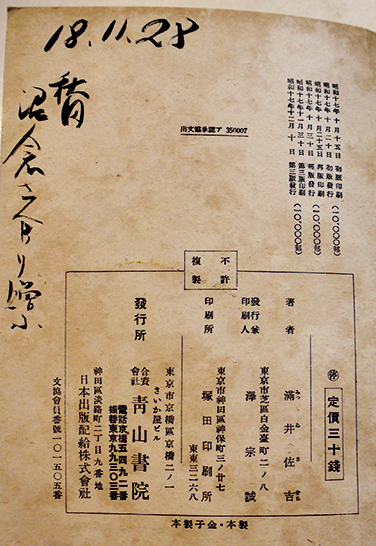 18.11.28
沼倉さんより贈らる
出文協承認ア 350007
昭和十七年十月十五日 初版印刷
昭和十七年十月二十日 初版發行 (一〇,〇〇〇部)
昭和十七年十月二十五日 再版印刷
昭和十七年十月三十日 再版發行 (一〇,〇〇〇部)
昭和十七年十一月三十日 第三版印刷
昭和十七年十二月十日 第三版發行 (一〇,〇〇〇部)
不許複製
㊕ 定價三十錢
著者 滿井佐吉
みつゐさきち
東京市芝區白金臺町二ノ八
發行兼印刷人 澤宗誠
東京市神田區神保町三ノ廿七
印刷所 塚田印刷所
東東三二六八
東京市京橋區京橋二ノ一
さいか屋ビル
發行所 合資會社 靑山書院
電話京橋五四九二番
振替東京九九三〇三番
神田區淡路町二丁目九番地
日本出版配給株式會社
文協會員番號一〇一五〇五番
製本・金子製本